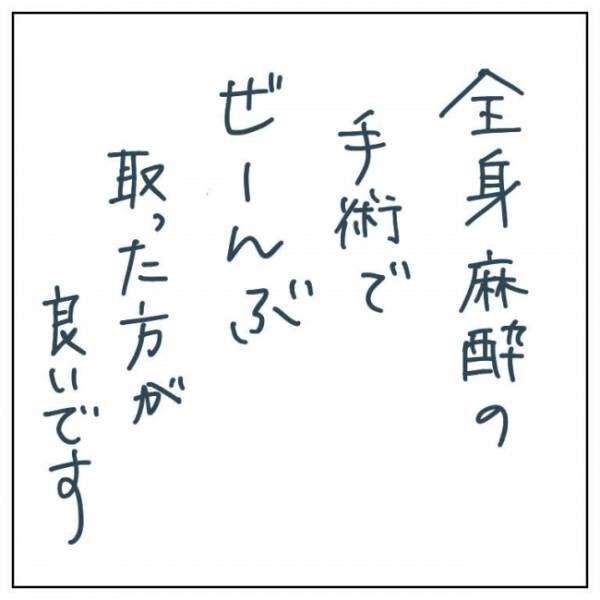 全身麻酔の
手術で
ぜーんぶ
取った方が
良いです